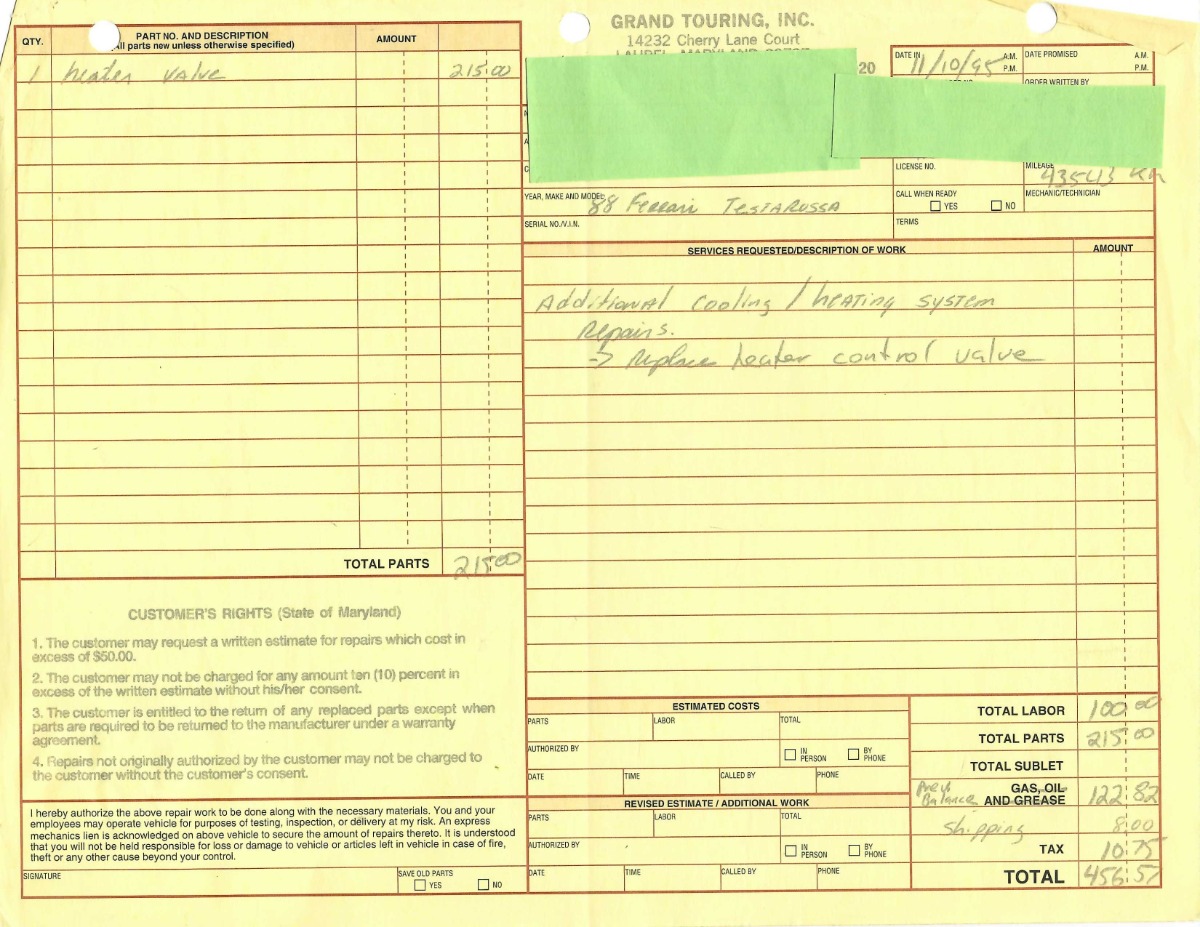 GRAND TOURING, INC.
14232 Cherry Lane Court
LAUREL, MARYLAND
QTY.
PART NO. AND DESCRIPTION
(All parts new unless otherwise specified)
AMOUNT
1 heater valve 215.00
TOTAL PARTS 215.00
CUSTOMER'S RIGHTS (State of Maryland)
1. The customer may request a written estimate for repairs which cost in
excess of $50.00.
2. The customer may not be charged for any amount ten (10) percent in
excess of the written estimate without his/her consent.
3. The customer is entitled to the return of any replaced parts except when
parts are required to be returned to the manufacturer under a warranty
agreement.
4. Repairs not originally authorized by the customer may not be charged to
the customer without the customer's consent.
I hereby authorize the above repair work to be done along with the necessary materials. You and your
employees may operate vehicle for purposes of testing, inspection, or delivery at my risk. An express
mechanics lien is acknowledged on above vehicle to secure the amount of repairs thereto. It is understood
that you will not be held responsible for loss or damage to vehicle or articles left in vehicle in case of fire,
theft or any other cause beyond your control.
SIGNATURE
SAVE OLD PARTS
YES NO
20
DATE IN 11/10/95 A.M. P.M.
DATE PROMISED A.M. P.M.
ORDER WRITTEN BY
LICENSE NO.
MILEAGE 43543 KM
YEAR, MAKE AND MODEL 88 Ferrari TESTAROSSA
CALL WHEN READY
YES NO
MECHANIC/TECHNICIAN
SERIAL NO./V.I.N.
TERMS
SERVICES REQUESTED/DESCRIPTION OF WORK
AMOUNT
Additional cooling / heating system
Repairs.
-> replace heater control valve
ESTIMATED COSTS
PARTS LABOR TOTAL
AUTHORIZED BY
IN PERSON BY PHONE
DATE TIME CALLED BY PHONE
REVISED ESTIMATE / ADDITIONAL WORK
PARTS LABOR TOTAL
AUTHORIZED BY
IN PERSON BY PHONE
DATE TIME CALLED BY PHONE
TOTAL LABOR 100.00
TOTAL PARTS 215.00
TOTAL SUBLET
Balance GAS, OIL AND GREASE 122.82
Shipping 8.00
TAX 10.75
TOTAL 456.57